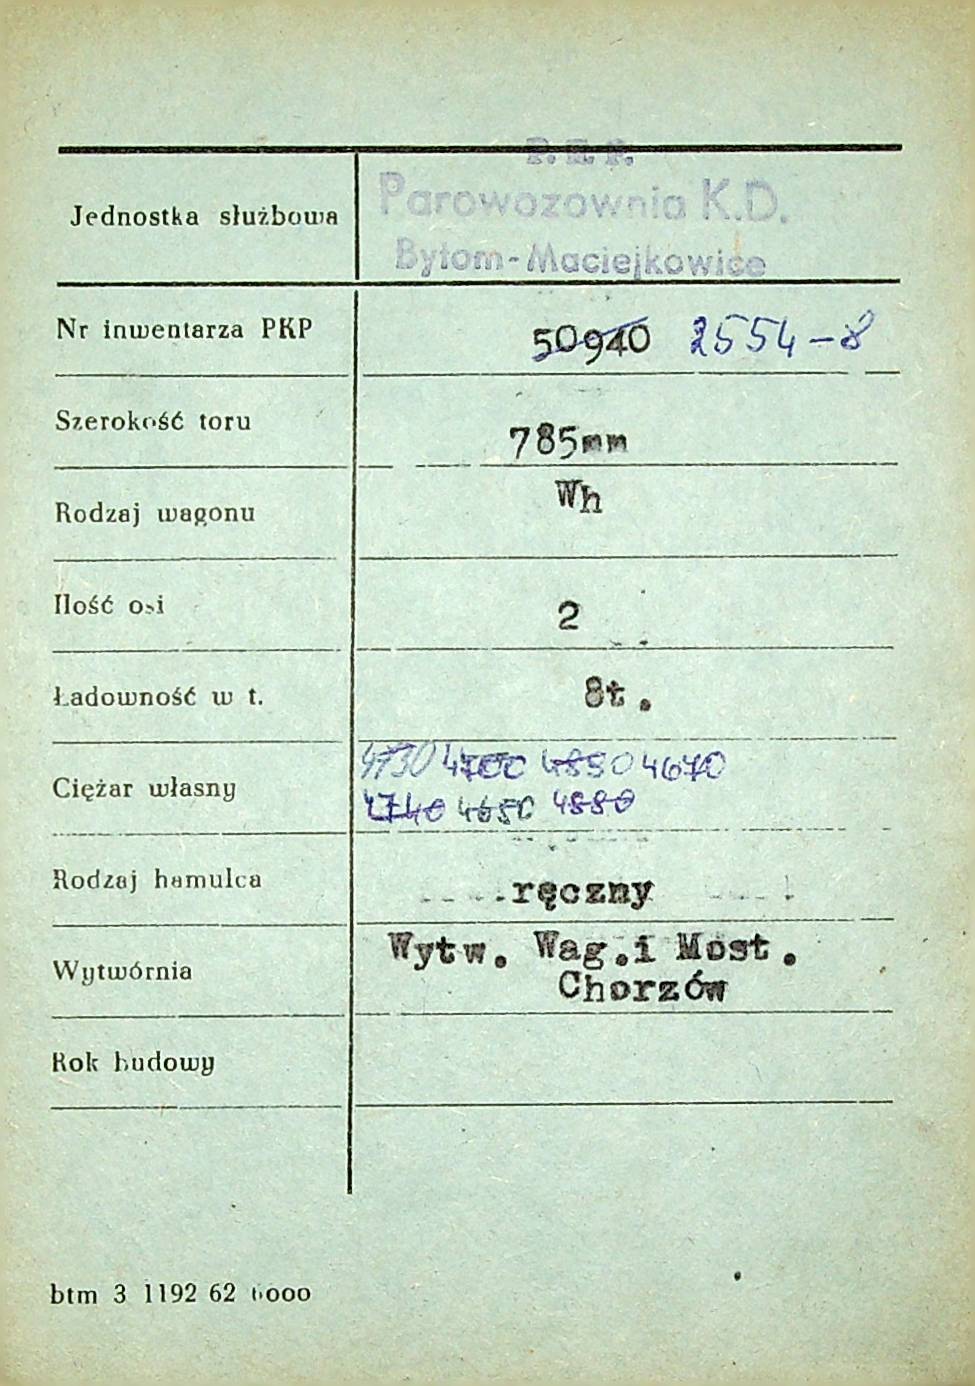 P. K. P.
Parowozownia K.D.
Bytom-Maciejkowice
Jednostka służbowa
Nr inwentarza PKP 50940 2554-8
Szerokość toru 785mm
Rodzaj wagonu Wh
Ilość osi 2
Ładowność w t. 8t.
Ciężar własny 4730 4700 4850 4670
4740 4650 4880
Rodzaj hamulca ręczny
Wytwórnia Wytw. Wag.i Most.
Chorzów
Rok budowy
btm 3 1192 62 6000